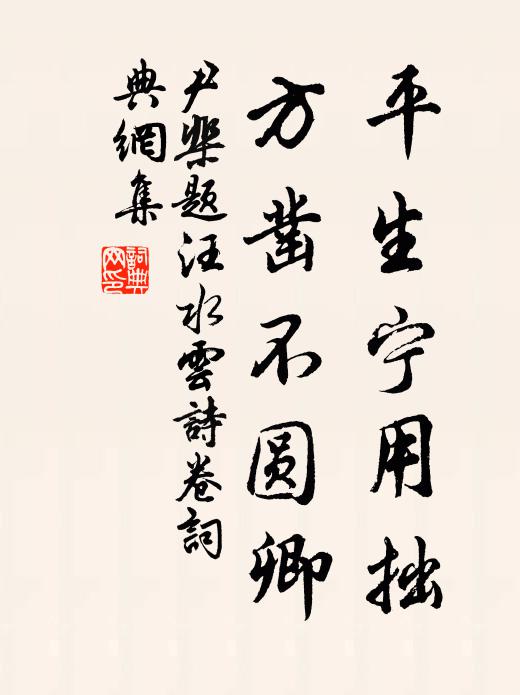 平生宁用拙
方凿不圆卿
尹桨题汪水雲詩卷詞
典網集
詞典网印